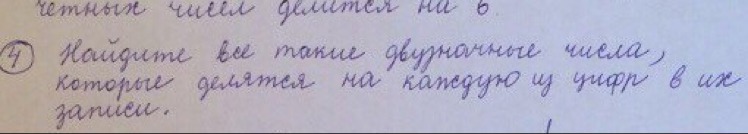 четных чисел делится на 6.
4 Найдите все такие двузначные числа,
которые делятся на каждую из цифр в их
записи.